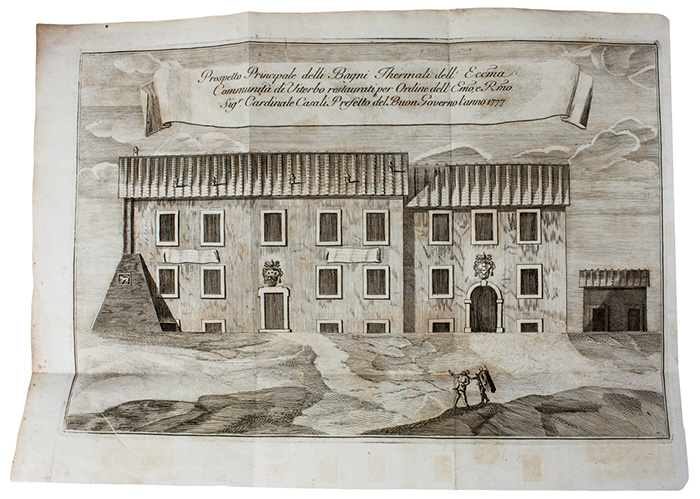 Prospetto Principale delli Bagni Thermali dell' Eccma
Communità di Viterbo restaurati per Ordine dell' Emo, e Rmo
Sigr Cardinale Casali Prefetto del Buon Governo l'anno 1777